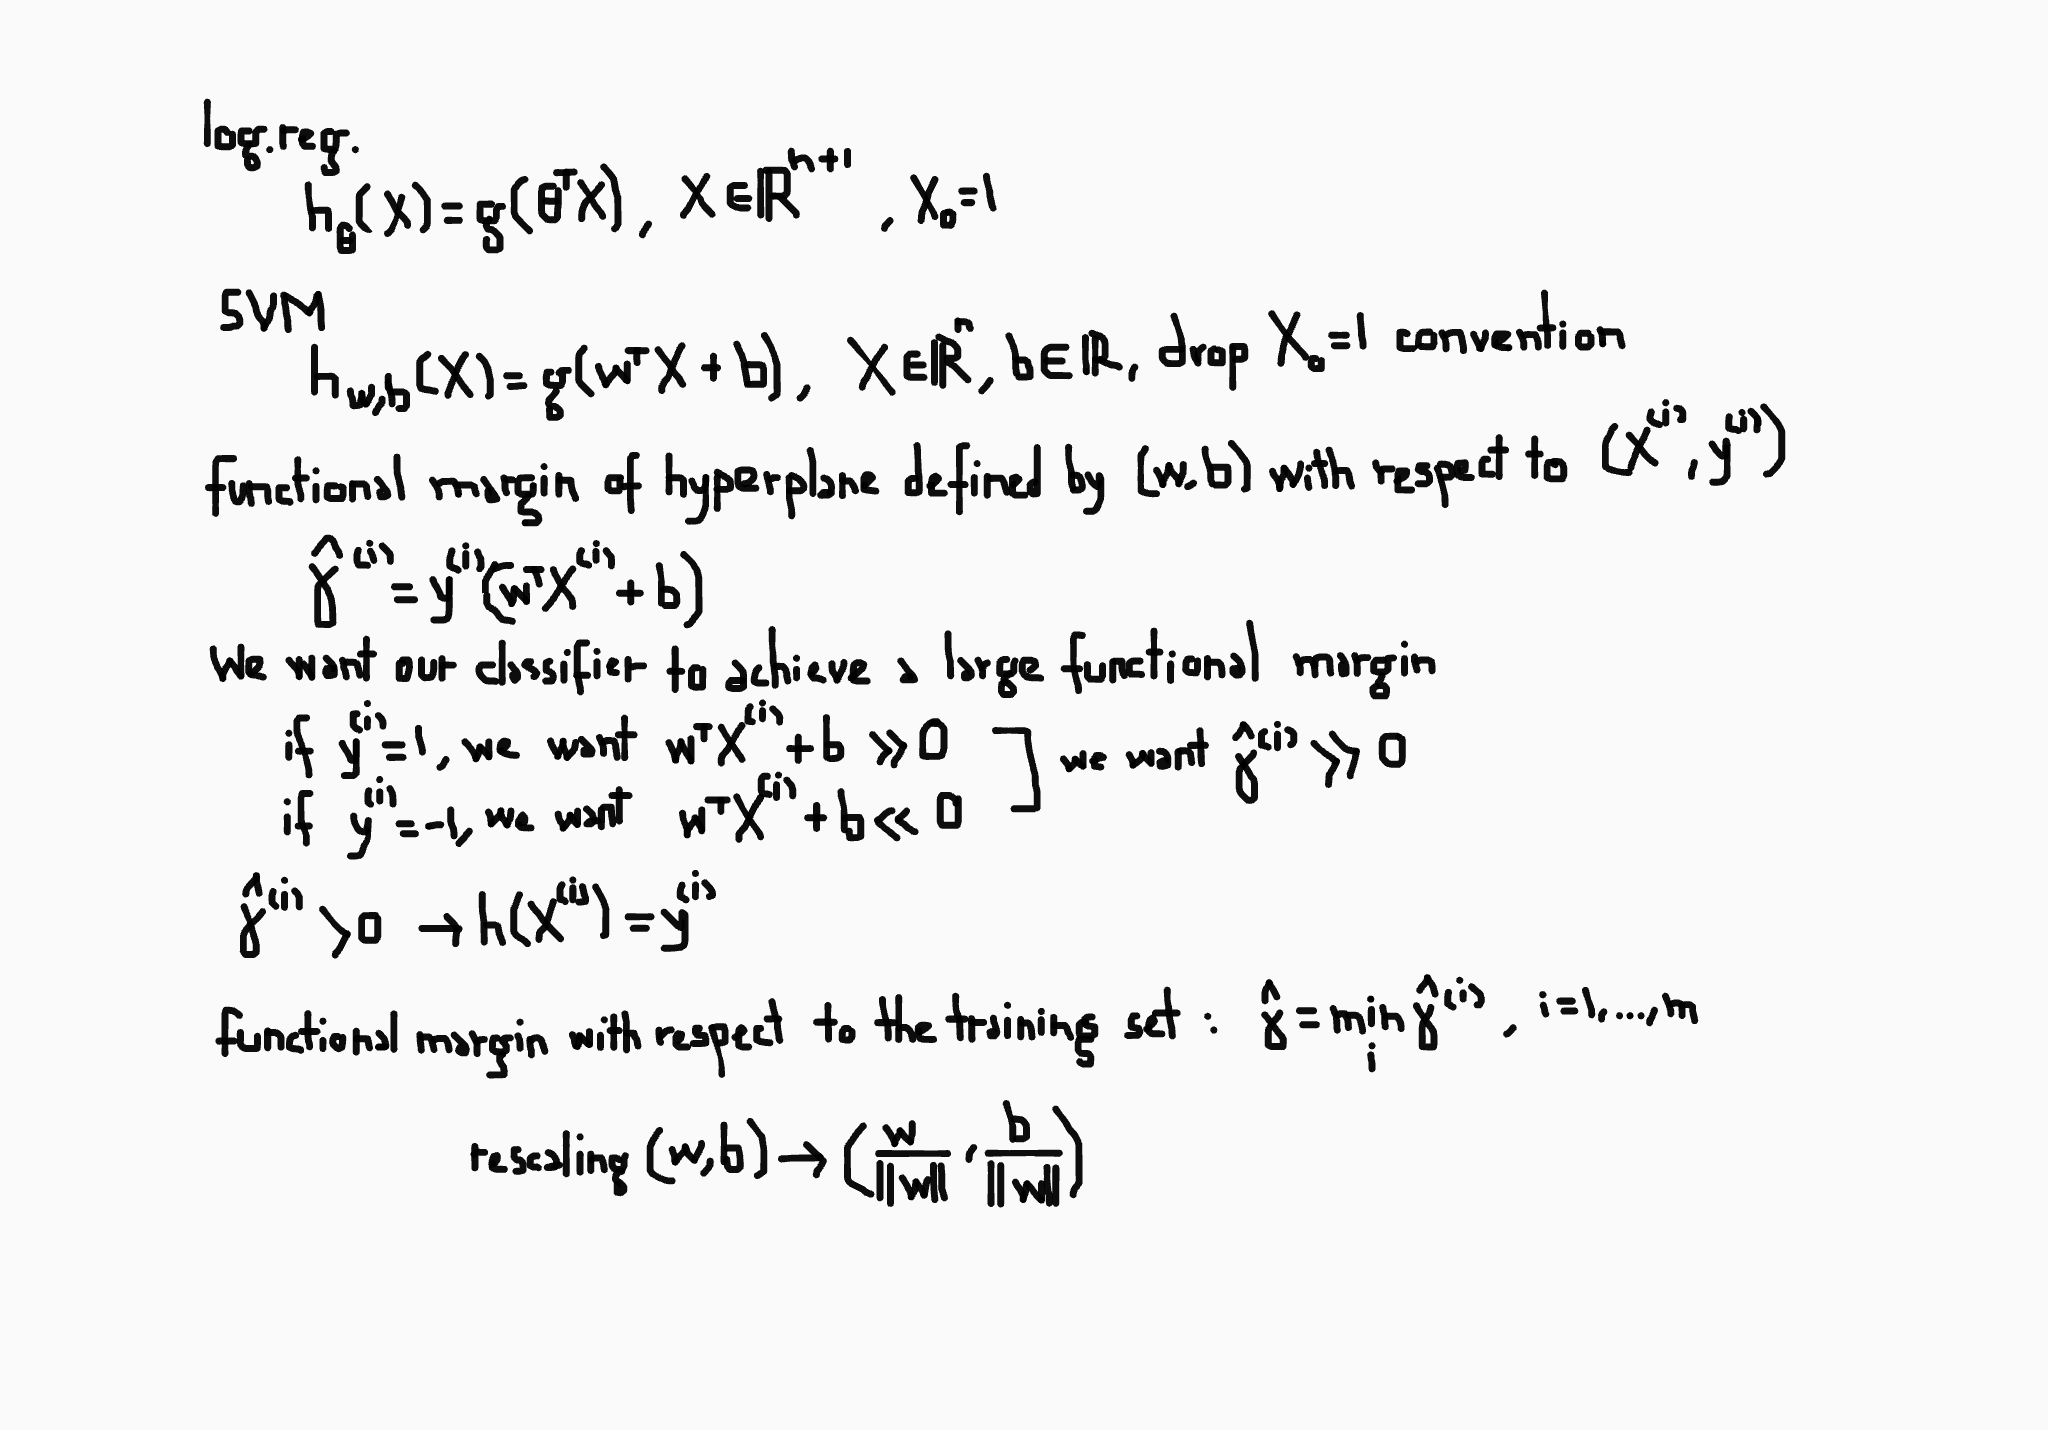 log.reg.
h_θ(X) = g(θ^T X), X ∈ ℝ^{n+1}, X_0 = 1
SVM
h_{w,b}(X) = g(w^T X + b), X ∈ ℝ^n, b ∈ ℝ, drop X_0 = 1 convention
functional margin of hyperplane defined by (w,b) with respect to (X^{(i)}, y^{(i)})
γ̂^{(i)} = y^{(i)}(w^T X^{(i)} + b)
We want our classifier to achieve a large functional margin
if y^{(i)} = 1, we want w^T X^{(i)} + b ≫ 0 ] we want γ̂^{(i)} ≫ 0
if y^{(i)} = -1, we want w^T X^{(i)} + b ≪ 0
γ̂^{(i)} > 0 → h(X^{(i)}) = y^{(i)}
functional margin with respect to the training set : γ̂ = min_i γ̂^{(i)}, i = 1, ..., m
rescaling (w,b) → (w/||w||, b/||w||)